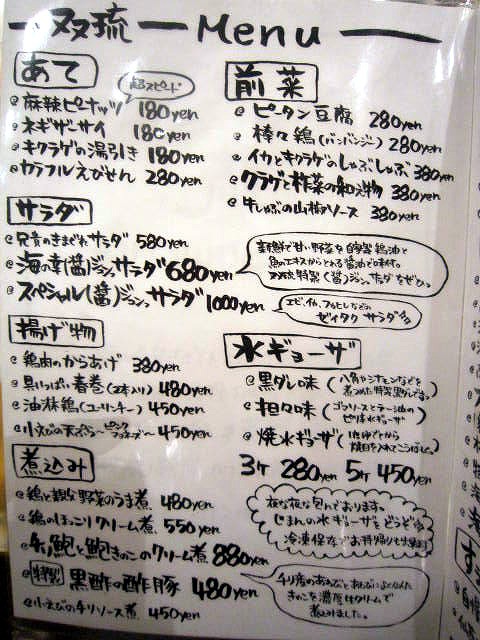 双琉 Menu
あて
超スピード
麻辣ピーナッツ 180yen
ネギザーサイ 180yen
キクラゲの湯引き 180yen
カラフルえびせん 280yen
前菜
ピータン豆腐 280yen
棒々鶏(バンバンジー) 280yen
イカとキクラゲのしゃぶしゃぶ 380yen
クラゲと柞菜の和え物 380yen
牛しゃぶの山椒ソース 380yen
サラダ
兄貴のきまぐれサラダ 580yen
海の幸(醤)ジャンサラダ 680yen
スペシャル(醤)ジャンサラダ 1000yen
新鮮で甘い野菜を自家製鶏油と
魚のエキスからとれる醤油で味付。
双琉特製(醤)ジャンサラダをぜひ。
エビ、イカ、
ゼイタクサラダ
揚げ物
鶏肉のからあげ 380yen
具いっぱい春巻(2本入り) 480yen
油淋鶏(ユーリンチー) 450yen
小えびの天ぷら 450yen
水ギョーザ
黒ダレ味(八角やシナモンなどを
煮つめた特製黒ダレです。)
担々味(ゴマソースとラー油の
ピリ辛水ギョーザ)
焼水ギョーザ(ゆでてから
焼目を入れてこうばしく。)
3ケ 280yen 5ケ 450yen
夜な夜な包んでおります。
じまんの水ギョーザをどうぞ。
冷凍保存でお持帰りも出来ます
煮込み
鶏と親な野菜のうま煮 480yen
鶏のほっこりクリーム煮 550yen
鮑と鮑きのこのクリーム煮 880yen
特製 黒酢の酢豚 480yen
小えびのチリソース煮 450yen
きのこを濃厚なクリームで
煮込みました。